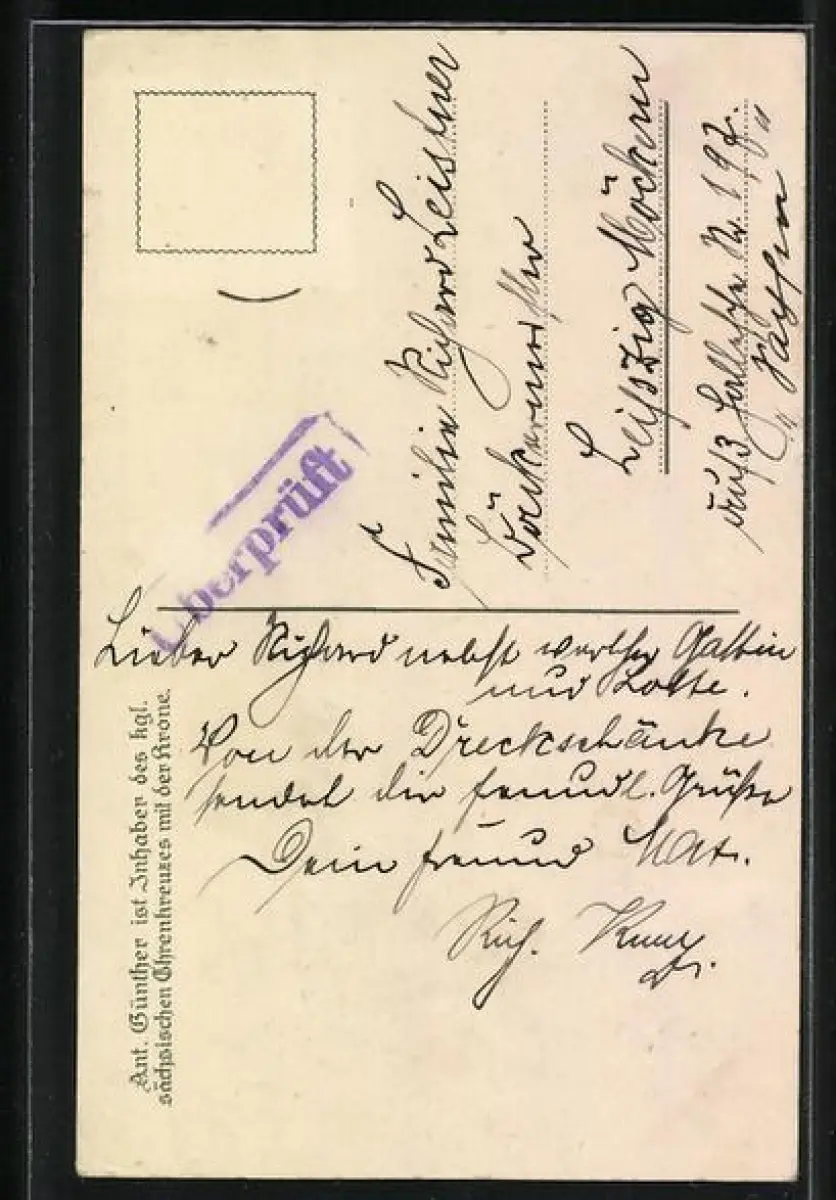 Ant. Günther ist Inhaber des kgl.
sächsischen Ehrenkreuzes mit der Krone.
Überprüft
Familie Richard Leistner
Bäckermstr
Leipzig Möckern
Hallesche Nr. 197.
Sachsen
Lieber Richard nebst werther Gattin
und Lotte.
Von der Dreckschänke
sendet dir freundl. Grüße
Dein Freund
Rich.